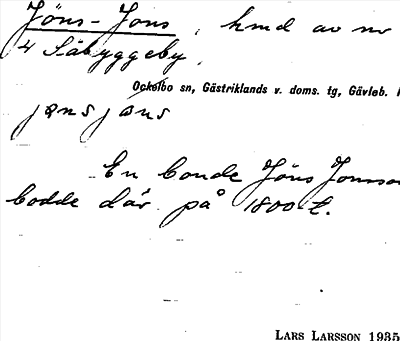 Jöns-Jons, hmd av nr
4 Säbyggeby,
Ockelbo sn, Gästriklands v. doms. tg, Gävleb.
jæns jɑns
En bonde Jöns Jonsson
bodde där på 1800-t.
LARS LARSSON 1935